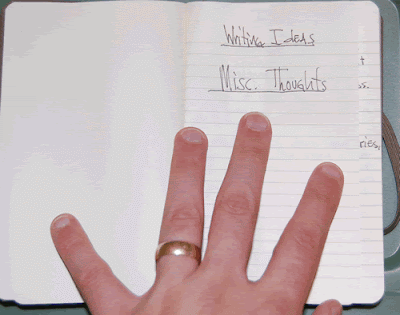 Writing Ideas
Misc. Thoughts